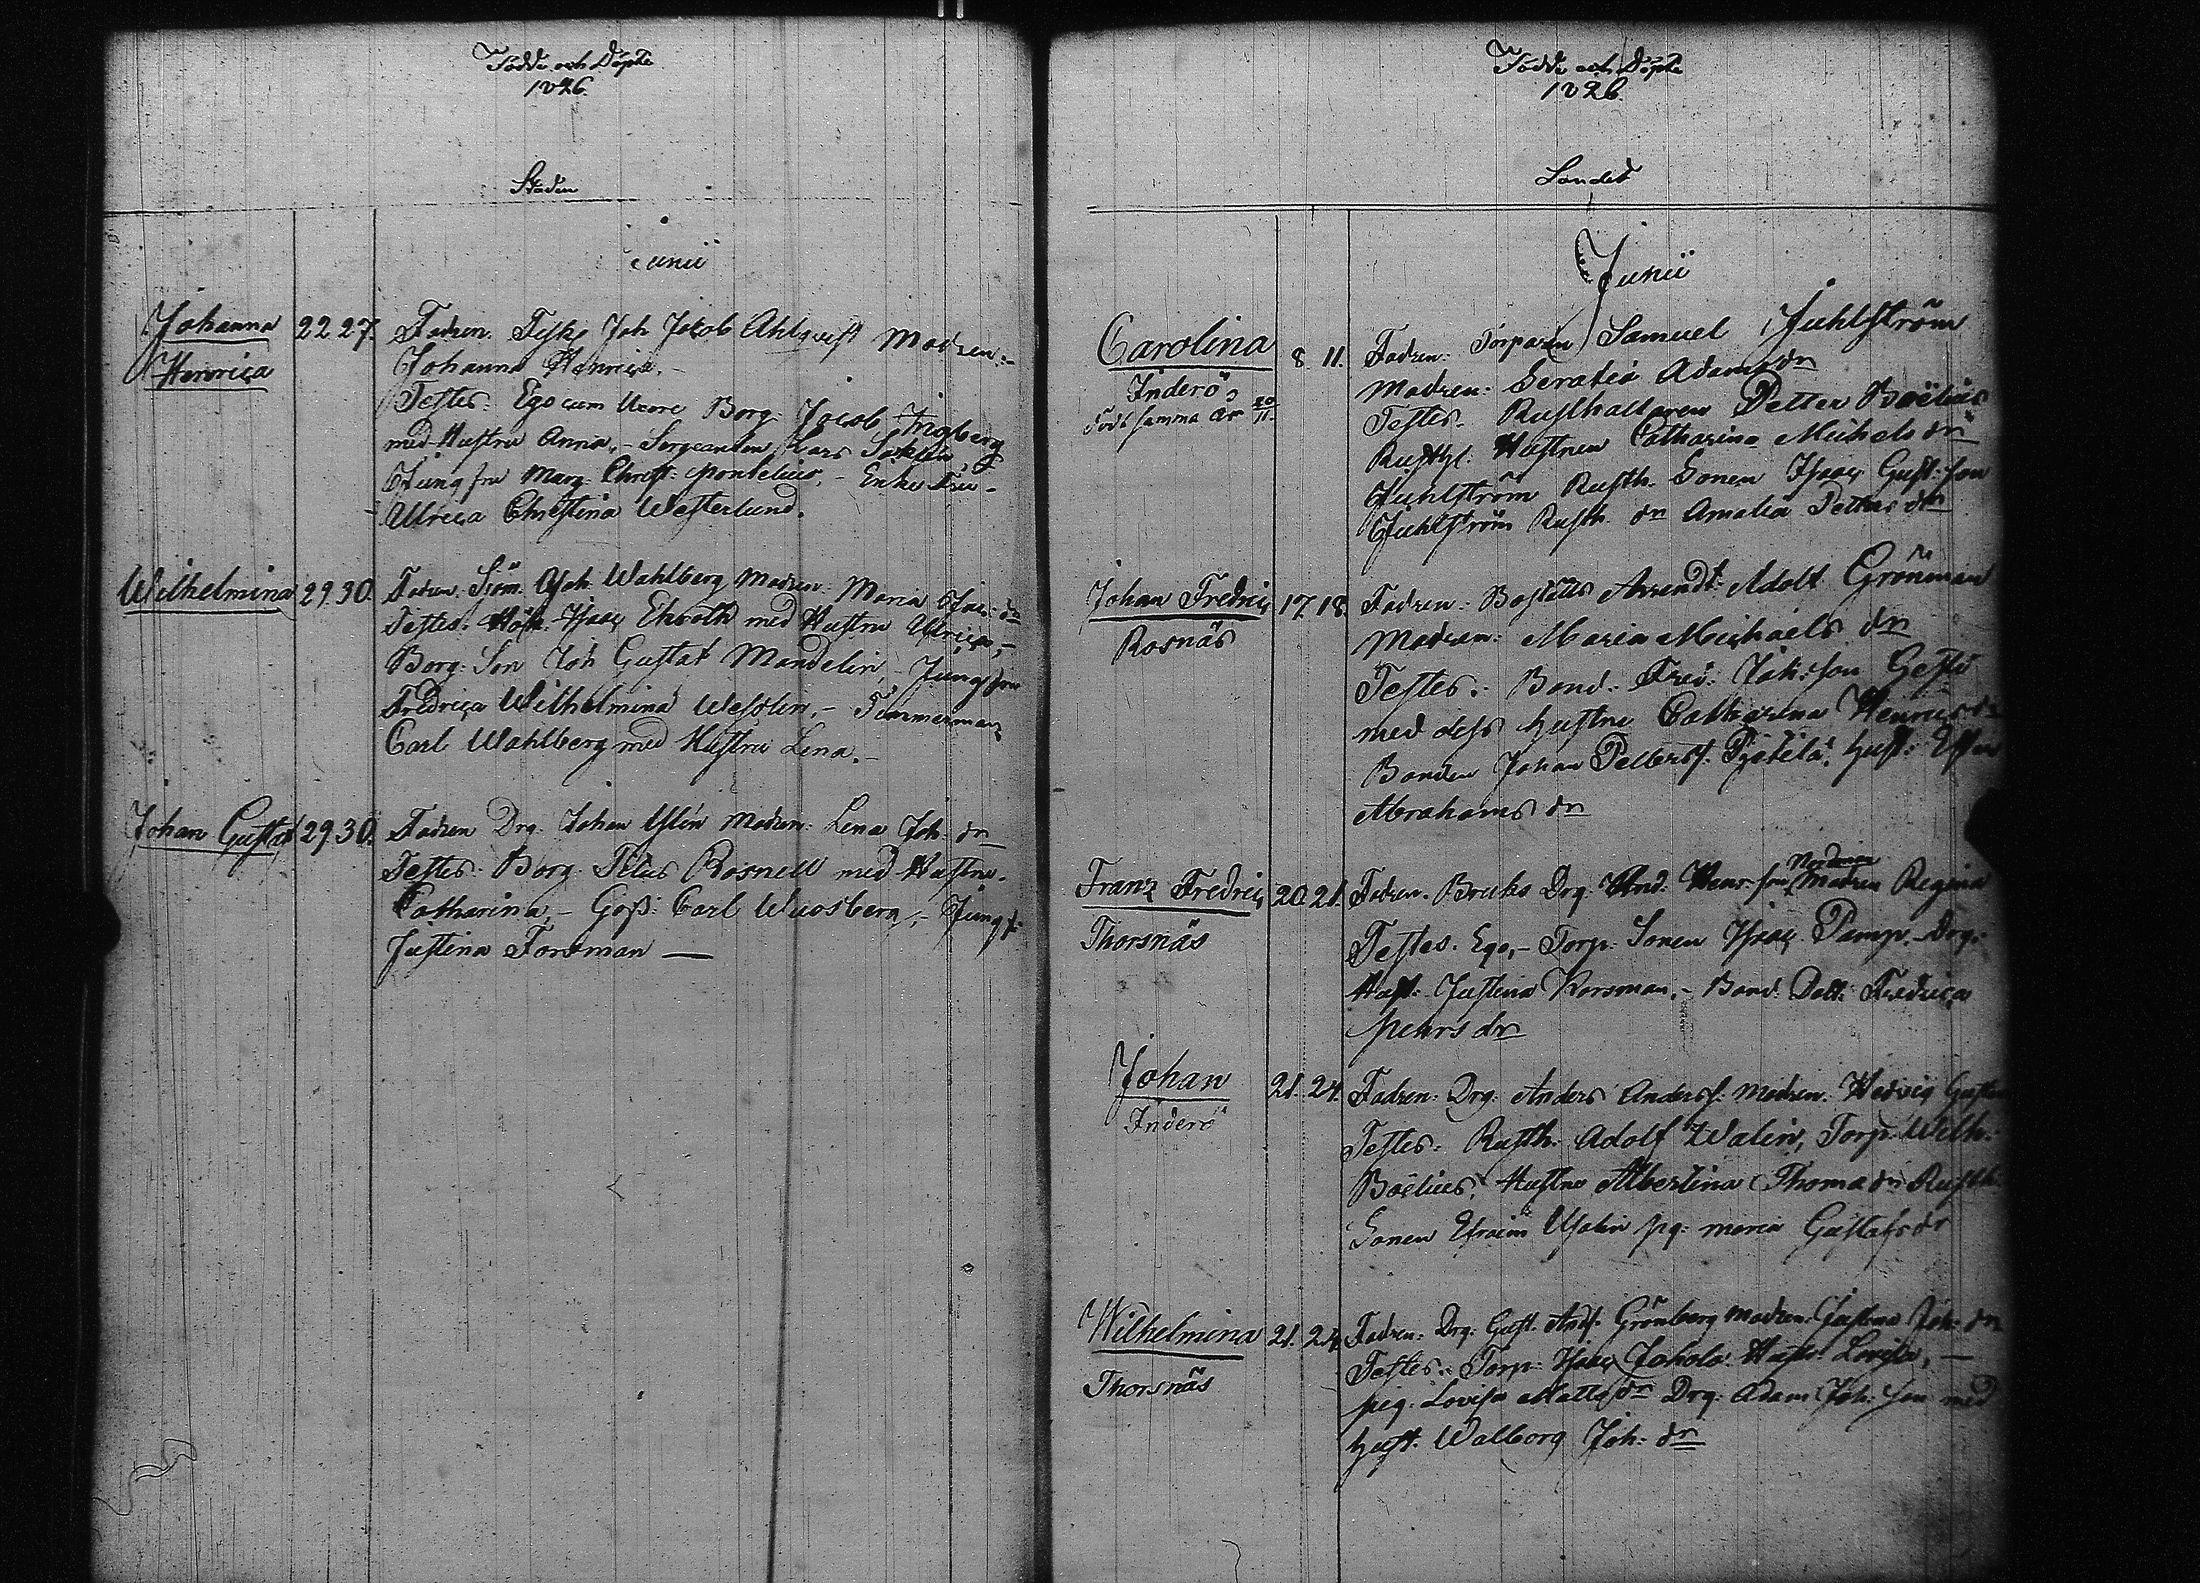 Födde och Döpte
1826.
Staden
Junii
Johanna 22 27. Fadren. Fisk. Joh Jacob Ahlqvist Modren:-
Henrica Johanna Henrica.-
Testes. Ego cum Uxore Borg: Jacob Engberg
med Hustru Anna,- Sergeanten Lars
Jungfru Marg. Christ: Pontelius,- Enke Fru-
Ulrica Christina Westerlund.
Wilhelmina 29. 30. Fadren. Sjöm. Joh. Wahlberg Modren: Maria Isac: dr
Testes. Isaac Ekroth med Hustru Ulrica,-
Borg: Son Joh Gustaf Mandelin,- Jungfru
Fredrica Wilhelmina Wesslin,- Timmerman
Carl Wahlberg med Hustru Lena.-
Johan Gustaf 29. 30. Fadren Drg. Johan Modren: Lena Joh: dr
Testes. Borg. Petter Rosnell med Hustru.
Catharina,- Goss: Carl Widsberg,- Jungf:
Justina Forsman —
Födde och Döpte
1826.
Landet
Junii
Carolina 8. 11. Fadren: Torparen Samuel Juhlström
Inderö Modren: Serafia Adamsdr
död samma år 20/11. Testes. Rusthållaren Petter Boëlius
Rusth. Hustrun Catharina Michelsdr
Juhlström Rusth. Sonen Isaac Gust: son
Juhlström Rusth. dr Amalia Petters dr
Johan Fredric 17. 18. Fadren: Arrendt: Adolf Grönman
Rosnäs Modren: Maria Michaels dr
Testes.: Bond: Fred: Joh: son Gestö
med dess hustru Catharina Henricsdr
Bonden Johan Petterss. hust: Ester
Abrahams dr
Franz Fredric 20. 21. Fadren. Bruks Drg. And: Henr: son Nordman Modren Regina
Thorsnäs Testes. Ego,- Torp: Sonen Isaac Pamp.- Drg:
Hust: Justina Korsman.- Bond: Dott: Fredrica
Pehrs dr
Johan 21. 24. Fadren: Drg: Anders Anderss. Modren. Hedvig Gustafs
Inderö Testes: Rusth: Adolf Walin, Torp: Wilh:
Boëlius, Hustru Albertina Thomadr Rusth.
Sonen Efraim Walin pg: Maria Gustafsdr
Wilhelmina 21. 24. Fadren: Drg: Gust. Ands. Grönberg Modren. Justina Joh: dr
Thorsnäs Testes: Torp: Isaac Jahola Hust: Lovisa,-
pig. Lovisa Mattsdr Drg: Adam Joh: son med
hust. Walborg Joh: dr